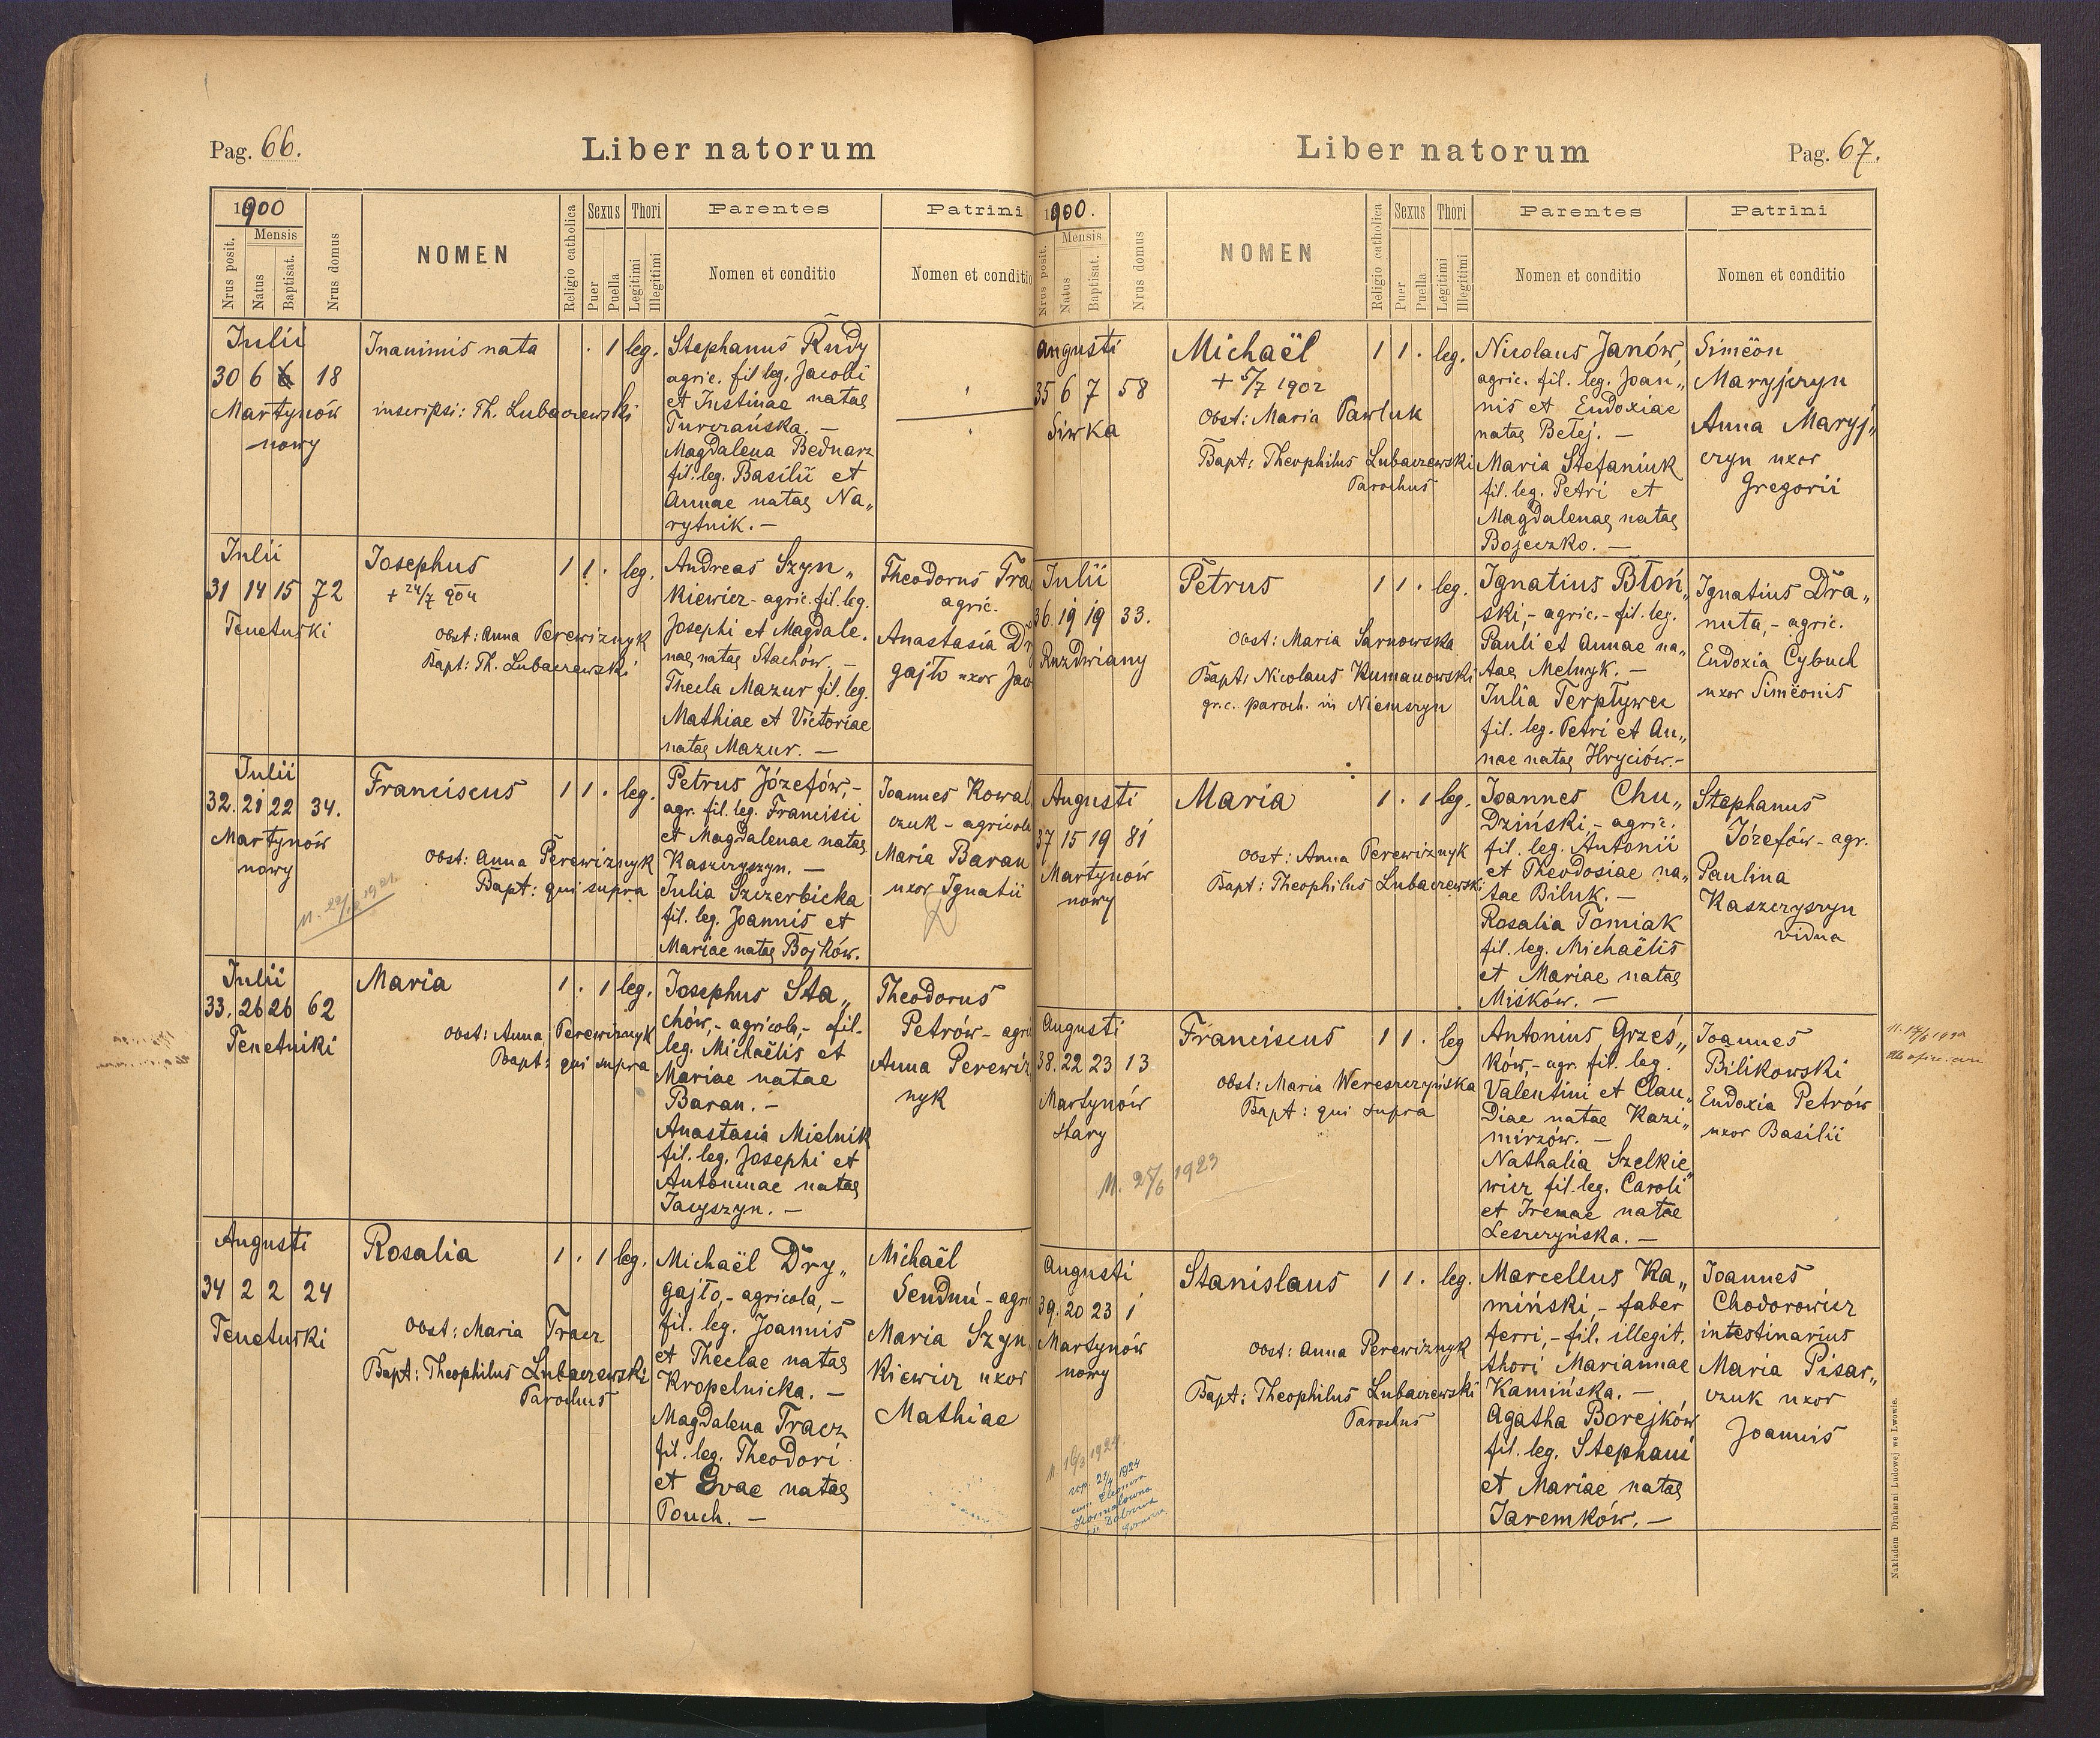 Pag. 66.
Liber natorum
1900
Mensis
Nrus posit.
Natus
Baptisat.
Nrus domus
NOMEN
Religio catholica
Sexus
Puer
Puella
Thori
Legitimi
Illegitimi
Parentes
Nomen et conditio
Patrini
Nomen et conditio
Julii
30 6 6 18
Martynów
nowy
Inanimis nata
. 1 leg.
inscripsi: Th. Lubaczewski
Stephanus Rudy
agric. fil. leg. Jacobi
et Justinae natae
Turczańska. —
Magdalena Bednarz
fil. leg. Basilii et
Annae natae Na„
rytnik. —
Julii
31 14 15 72
Tenetniki
Josephus
+ 24/7 904
1 1 . leg.
Obst: Anna Perewiznyk
Bapt: Th. Lubaczewski
Andreas Szyn„
kiewicz - agric. fil. leg.
Josephi et Magdale.
nae natae Stachów. —
Thecla Mazur fil. leg.
Mathiae et Victoriae
natae Mazur. —
Theodorus Tra
agric.
Anastasia Dr
gajło uxor Jac
Julii
32. 21 22 34.
Martynów
nowy
Franciscus
1 1 . leg.
Obst: Anna Perewiznyk
Bapt: qui supra
Petrus Józefów, -
agr. fil. leg. Francisci
et Magdalenae natae
Kaszczyszyn. —
Julia Szczerbicka
fil. leg. Joannis et
Mariae natae Bojków.
Joannes Kowal
czuk - agricola
Maria Baran
uxor Ignatii
Julii
33. 26 26 62
Tenetniki
Maria
1 . 1 leg.
Obst: Anna Perewiznyk
Bapt: qui supra
Josephus Sta„
chów, - agricola, - fil.
leg. Michaëlis et
Mariae natae
Baran. —
Anastasia Mielnik
fil. leg. Josephi et
Antoninae natae
Jacyszyn. —
Theodorus
Petrów - agri
Anna Perewiz
nyk
Augusti
34 2 2 24
Tenetniki
Rosalia
1 . 1 leg.
Obst: Maria Tracz
Bapt: Theophilus Lubaczewski
Parochus
Michaël Dry„
gajło, - agricola, -
fil. leg. Joannis
et Theclae natae
Kropelnicka. —
Magdalena Tracz
fil. leg. Theodori
et Evae natae
Pouch. —
Michaël
Senduń - agri
Maria Szyn
kiewicz uxor
Mathiae
Liber natorum
Pag. 67.
1900.
Mensis
Nrus posit.
Natus
Baptisat.
Nrus domus
NOMEN
Religio catholica
Sexus
Puer
Puella
Thori
Legitimi
Illegitimi
Parentes
Nomen et conditio
Patrini
Nomen et conditio
Augusti
35 6 7 58
Siwka
Michaël
+ 5/7 1902
1 1 . leg.
Obst: Maria Pawluk
Bapt: Theophilus Lubaczewski
Parochus
Nicolaus Janów,
agric. fil. leg. Joan„
nis et Eudoxiae
natae Bełej. —
Maria Stefaniuk
fil. leg. Petri et
Magdalenae natae
Bojeczko. —
Simëon
Maryjczyn
Anna Maryj„
czyn uxor
Gregorii
Julii
36. 19 19 33.
Ruzdwiany
Petrus
1 1 . leg.
Obst: Maria Sarnowska
Bapt: Nicolaus Kumanowski
gr. c. paroch. in Niemszyn
Ignatius Błoń„
ski, - agric. - fil. leg.
Pauli et Annae na„
tae Melnyk. —
Julia Terpływec
fil. leg. Petri et An„
nae natae Hryciów. -
Ignatius Dra„
nuta, - agric.
Eudoxia Cybuch
uxor Simëonis
Augusti
37 15 19 81
Martynów
nowy
Maria
1 . 1 leg.
Obst: Anna Perewiznyk
Bapt: Theophilus Lubaczewski
Joannes Chu„
dziński, - agric.
fil. leg. Antonii
et Theodosiae na„
tae Biluk. —
Rosalia Tomiak
fil. leg. Michaëlis
et Mariae natae
Miśków. —
Stephanus
Józefów - agr.
Paulina
Kaszczyszyn
vidua
Augusti
38. 22 23 13
Martynów
stary
M. 27/6 1923
Franciscus
1 1 . leg
Obst: Maria Wereszczyńska
Bapt: qui supra
Antonius Grześ„
ków, - agr. fil. leg.
Valentini et Clau„
diae natae Kazi„
mirzów. —
Nathalia Szelkie„
wicz fil. leg. Caroli
et Irenae natae
Leszczyńska. —
Joannes
Bilikowski
Eudoxia Petrów
uxor Basilii
Augusti
39. 20 23 1
Martynów
nowy
Stanislaus
1 1 . leg.
Obst: Anna Perewiznyk
Bapt: Theophilus Lubaczewski
Parochus
Marcellus Ka„
miński, - faber
ferri, - fil. illegit.
thori Mariannae
Kamińska. —
Agatha Borejków
fil. leg. Stephani
et Mariae natae
Jaremków. —
Joannes
Chodorowicz
intestinarius
Maria Pisar„
czuk uxor
Joannis
Nakładem Drukarni Ludowej we Lwowie.